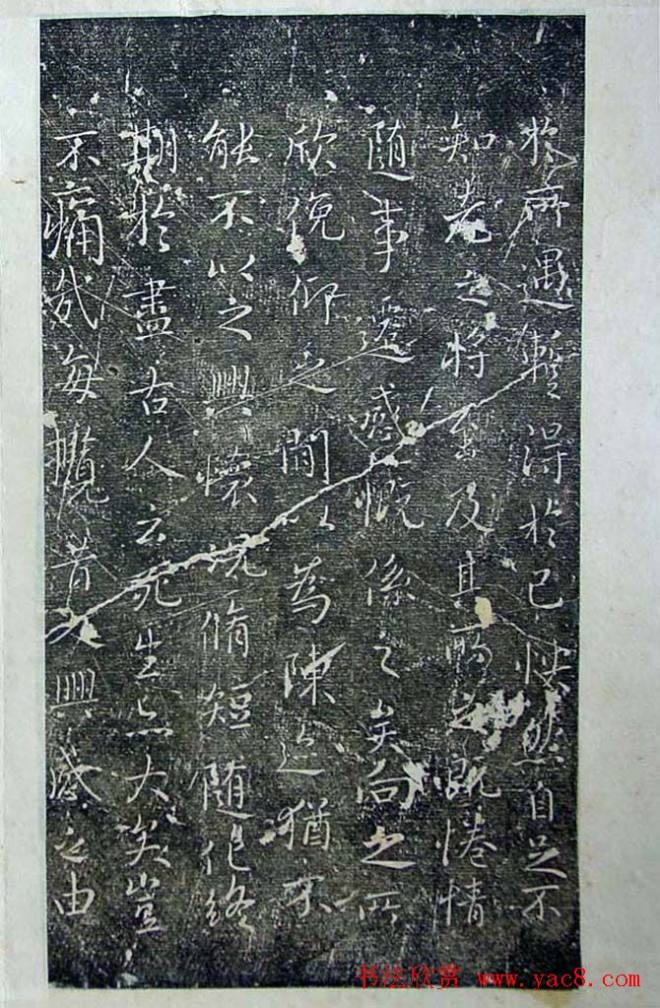 於所遇蹔得於己怏然自足不
知老之將至及其所之既惓情
随事遷感慨係之矣向之所
欣俛仰之間以為陳迹猶不
能不以之興懷況脩短随化終
期於盡古人云死生亦大矣豈
不痛哉每攬昔人興感之由
书法欣赏 www.yac8.com